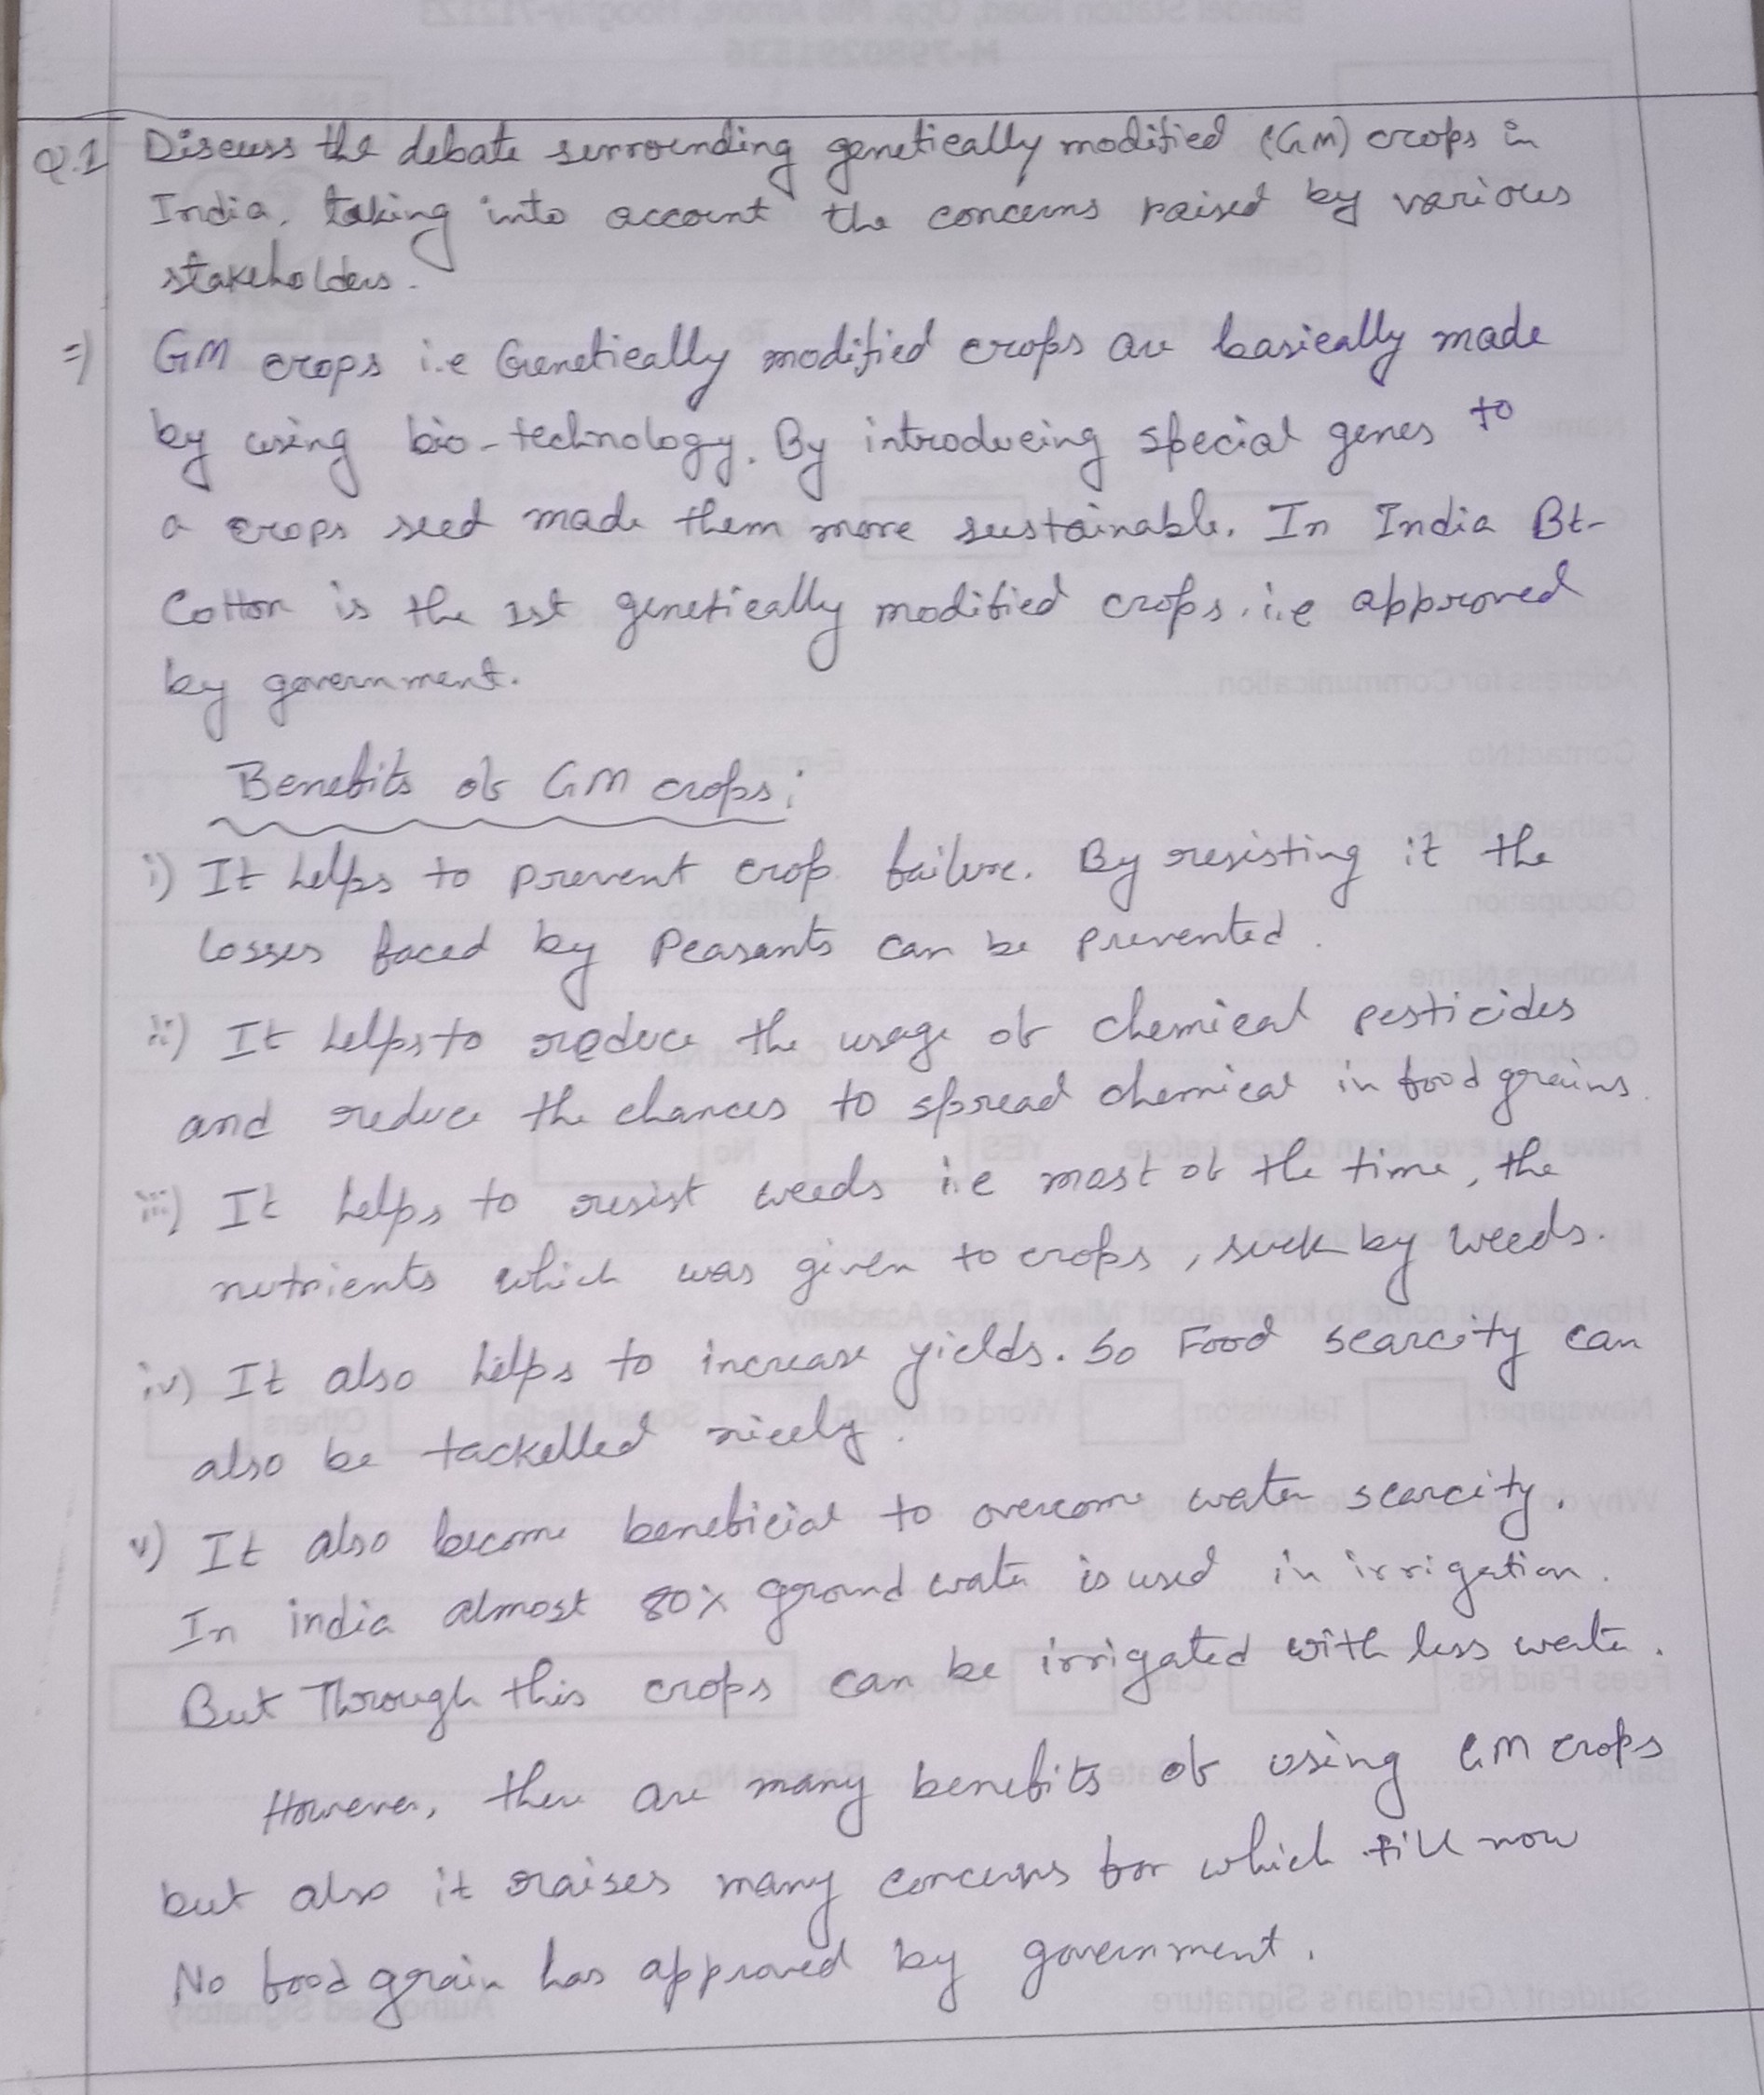 Q.1 Discuss the debate surrounding genetically modified (GM) crops in
India, taking into account the concerns raised by various
stakeholders.
=) GM crops i.e Genetically modified crops are basically made
by using bio-technology. By introducing special genes to
a crops seed made them more sustainable. In India Bt-
Cotton is the 1st genetically modified crops. i.e approved
by government.
Benefits of GM crops:
i) It helps to prevent crop failure. By resisting it the
losses faced by Peasants can be prevented.
ii) It helps to reduce the usage of chemical pesticides
and reduce the chances to spread chemical in food grains.
iii) It helps to resist weeds i.e most of the time, the
nutrients which was given to crops, suck by weeds.
iv) It also helps to increase yields. So Food scarcity can
also be tackelled nicely.
v) It also become beneficial to overcome water scarcity.
In india almost 80% ground water is used in irrigation.
But Through this crops can be irrigated with less water.
However, there are many benefits of using GM crops
but also it raises many concerns for which till now
No food grain has approved by government.